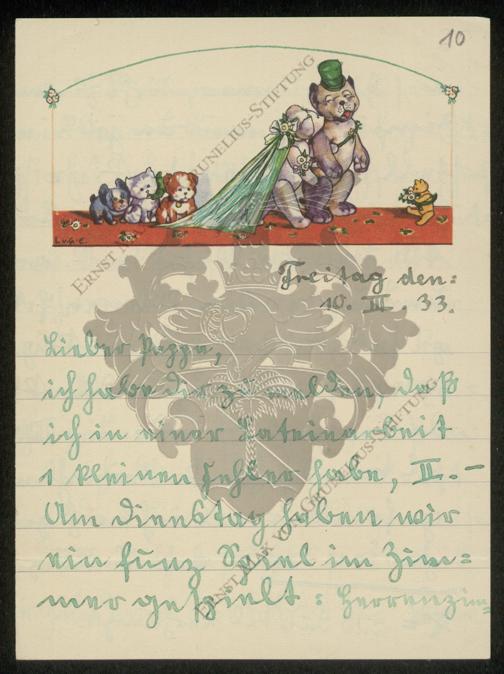 10
ERNST MAX VON GRUNELIUS-STIFTUNG
Freitag den:
10. III. 33.
Lieber Pappa,
ich habe dir zu melden, daß
ich in einer Lateinarbeit
1 kleinen Fehler habe, II.–
Am Dienstag haben wir
ein Spiel im Zim=
mer gespielt: Herrenzim=
ERNST MAX VON GRUNELIUS-STIFTUNG